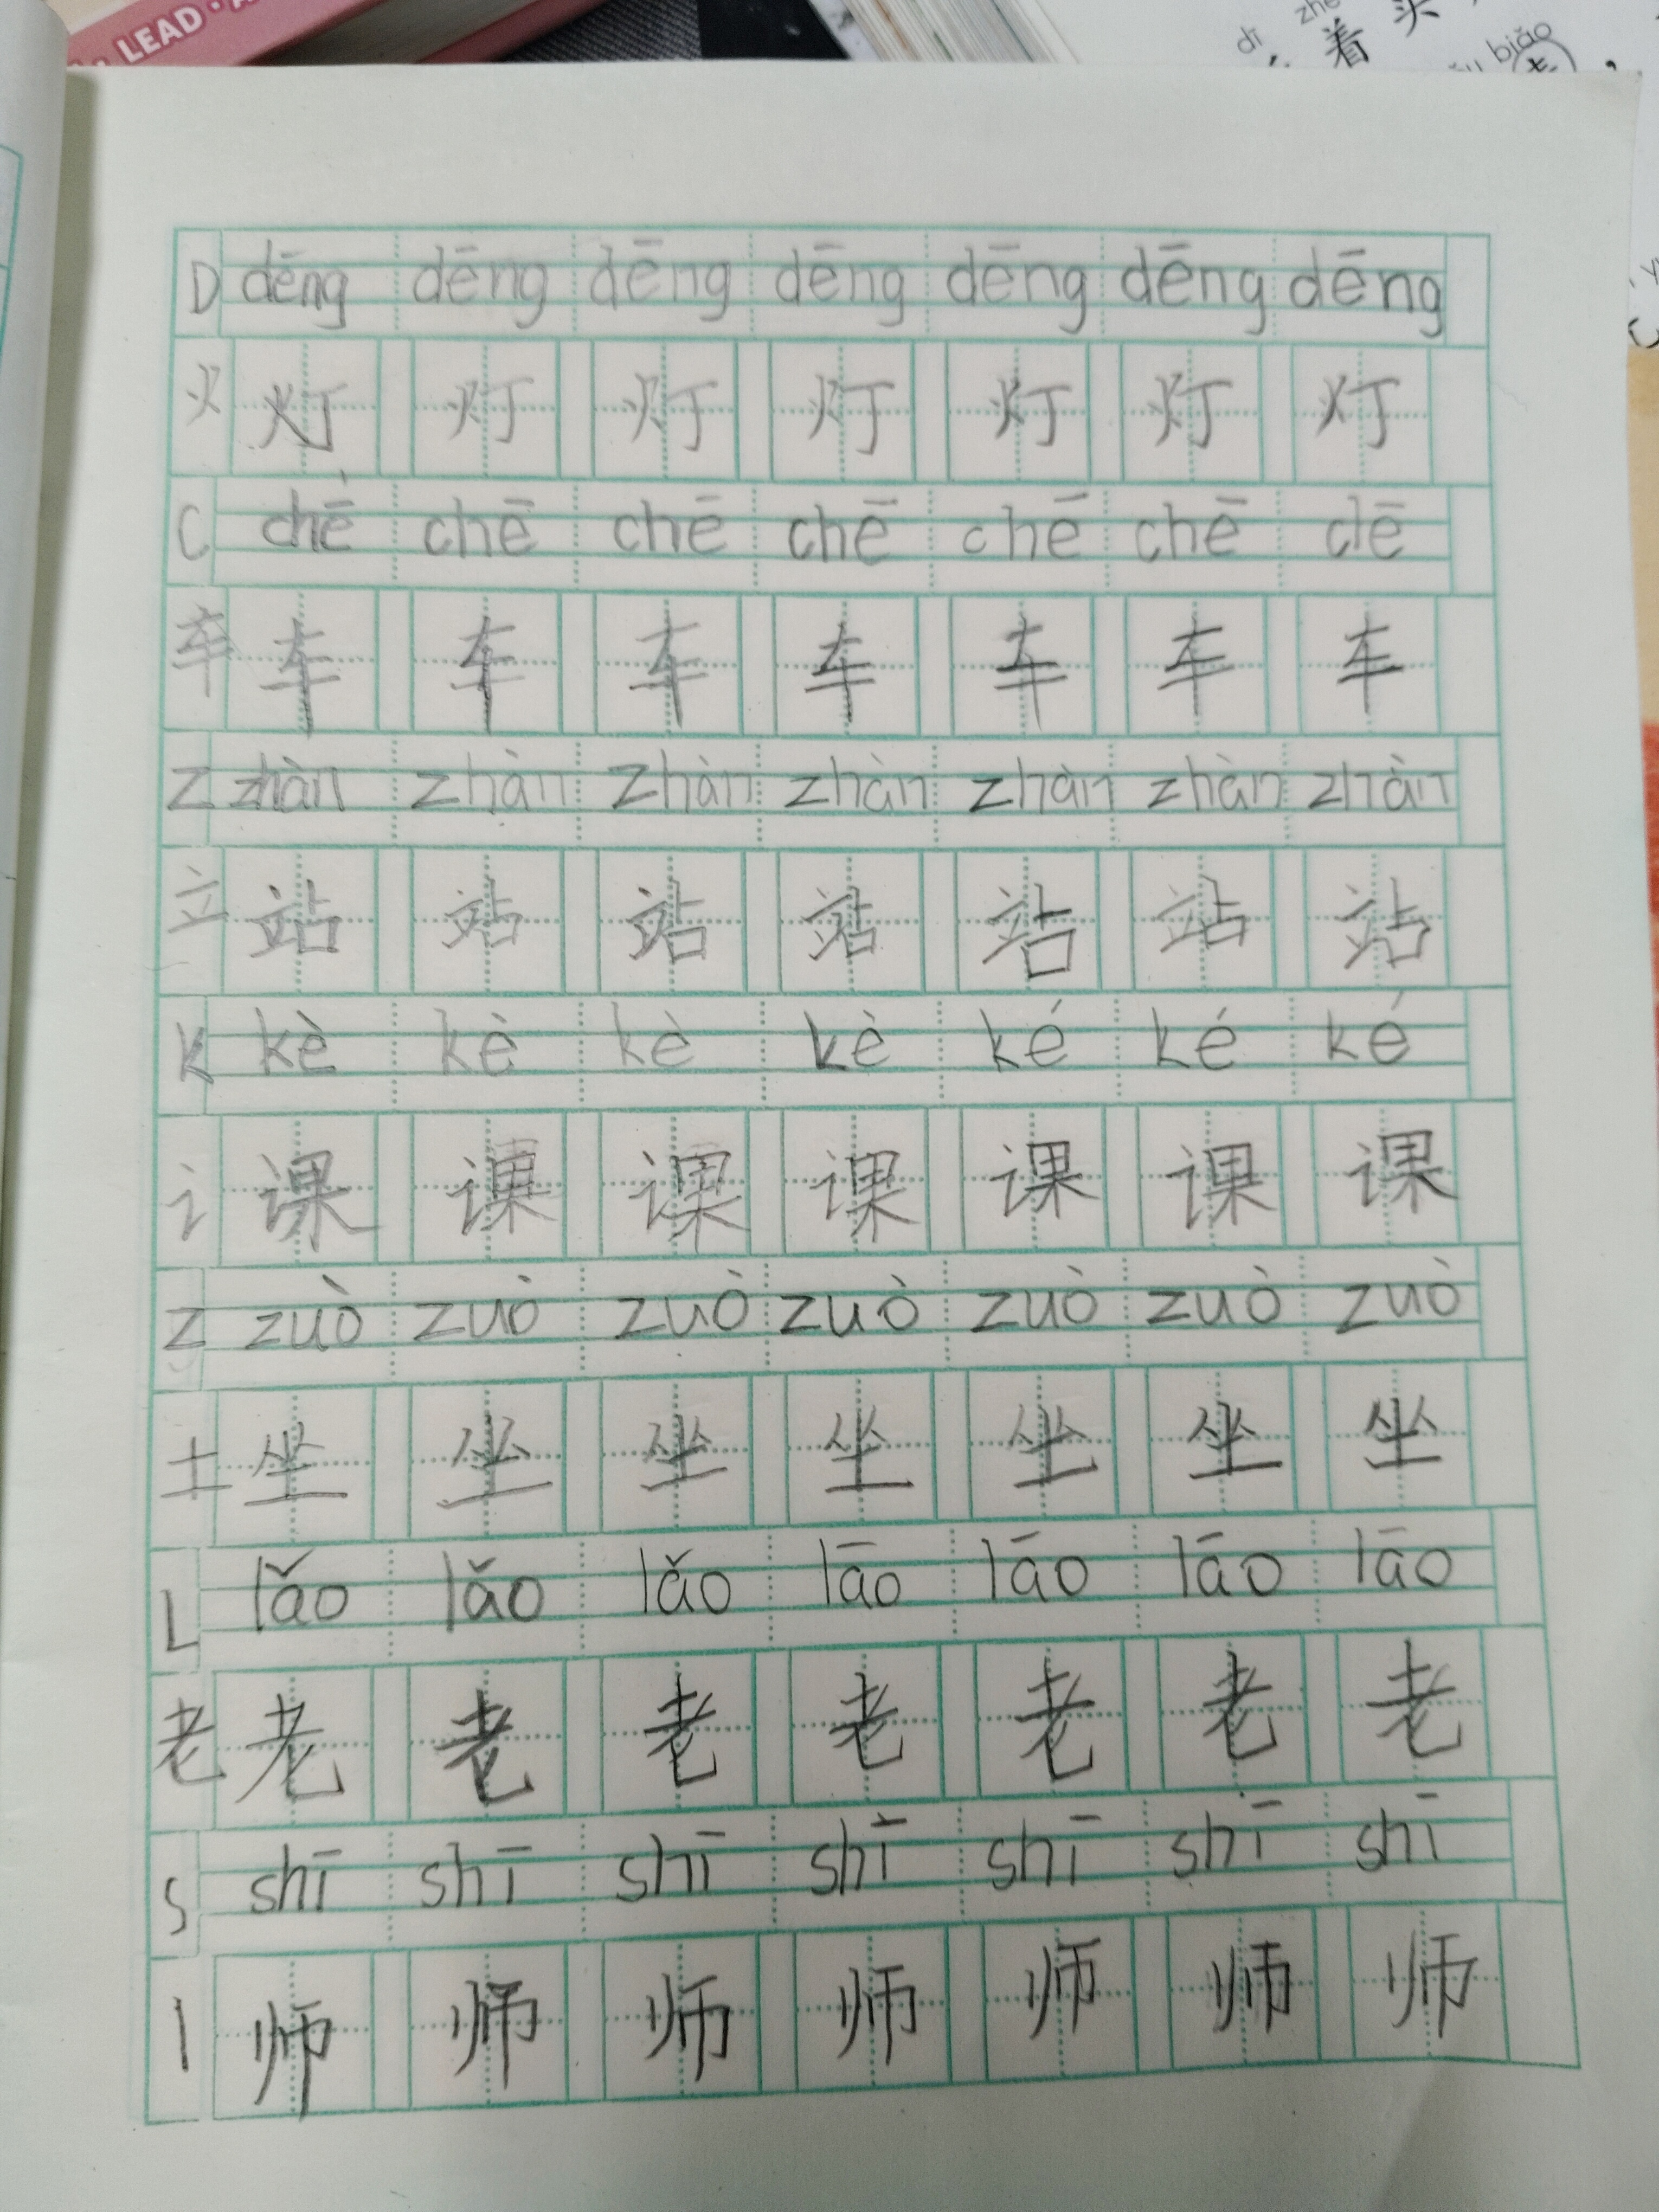 LEAD
dī zhe
着 头
biǎo
D dēng dēng dēng dēng dēng dēng dēng
火 灯 灯 灯 灯 灯 灯 灯
C chē chē chē chē chē chē clē
车 车 车 车 车 车 车 车
Z zhàn zhàn zhàn zhàn zhàn zhàn zhàn
立 站 站 站 站 站 站 站
K kè kè kè kè ké ké ké
讠 课 课 课 课 课 课 课
Z zuò zuò zuò zuò zuò zuò zuò
土 坐 坐 坐 坐 坐 坐 坐
L lǎo lǎo lǎo lāo lāo lāo lāo
老 老 老 老 老 老 老 老
S shī shī shī shī shī shī shī
丨 师 师 师 师 师 师 师